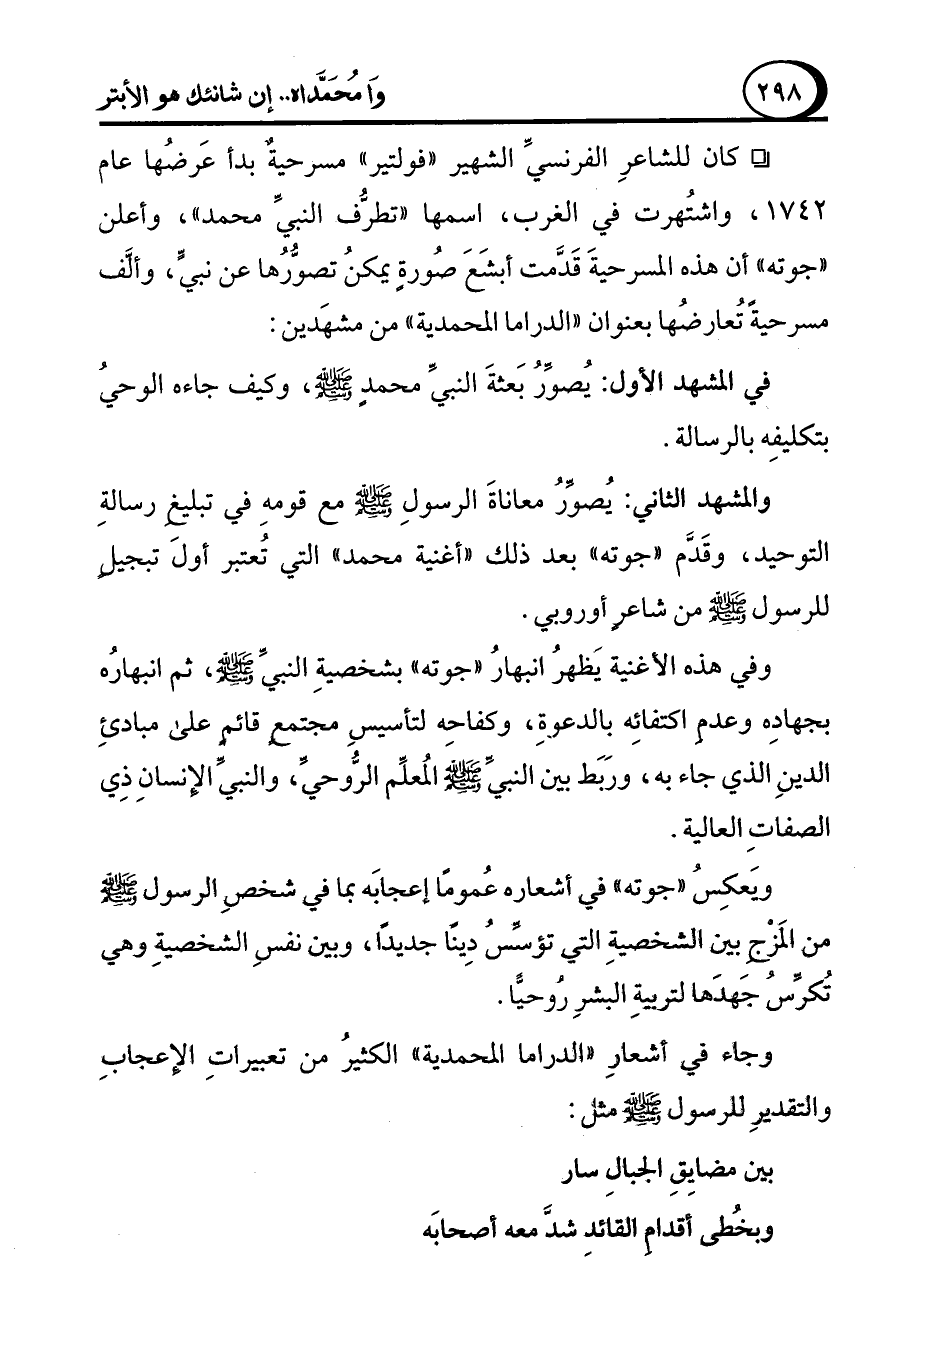 ٢٩٨
وَا مُحَمَّداه.. إن شانئك هو الأبتر
❏ كان للشاعرِ الفرنسيِّ الشهير «فولتير» مسرحيةٌ بدأ عَرضُها عام
١٧٤٢، واشتُهرت في الغرب، اسمها «تطرُّف النبيِّ محمد»، وأعلن
«جوته» أن هذه المسرحيةَ قَدَّمت أبشَعَ صُورةٍ يمكنُ تصوُّرُها عن نبيٍّ، وألَّف
مسرحيةً تُعارضُها بعنوان «الدراما المحمدية» من مشهَدين:
في المشهد الأول: يُصوِّرُ بَعثةَ النبيِّ محمدٍ ﷺ، وكيف جاءه الوحيُ
بتكليفِه بالرسالة.
والمشهد الثاني: يُصوِّرُ معاناةَ الرسولِ ﷺ مع قومهِ في تبليغِ رسالةِ
التوحيد، وقَدَّم «جوته» بعد ذلك «أغنية محمد» التي تُعتبر أولَ تبجيلٍ
للرسول ﷺ من شاعرٍ أوروبي.
وفي هذه الأغنية يَظهرُ انبهارُ «جوته» بشخصيةِ النبيِّ ﷺ، ثم انبهارُه
بجهادِه وعدمِ اكتفائه بالدعوةِ، وكفاحِه لتأسيسِ مجتمعٍ قائمٍ علىٰ مبادئِ
الدينِ الذي جاء به، ورَبَط بين النبيِّ ﷺ المُعلِّم الرُّوحيِّ، والنبيِّ الإنسانِ ذِي
الصفاتِ العالية.
ويَعكِسُ «جوته» في أشعاره عُمومًا إعجابَه بما في شخصِ الرسول ﷺ
من المَزْجِ بين الشخصيةِ التي تؤسِّسُ دِينًا جديدًا، وبين نفسِ الشخصيةِ وهي
تُكرِّسُ جَهدَها لتربيةِ البشرِ رُوحيًّا.
وجاء في أشعارِ «الدراما المحمدية» الكثيرُ من تعبيراتِ الإعجابِ
والتقديرِ للرسول ﷺ مثل:
بين مضايِقِ الجبالِ سار
وبخُطى أقدامِ القائدِ شدَّ معه أصحابَه